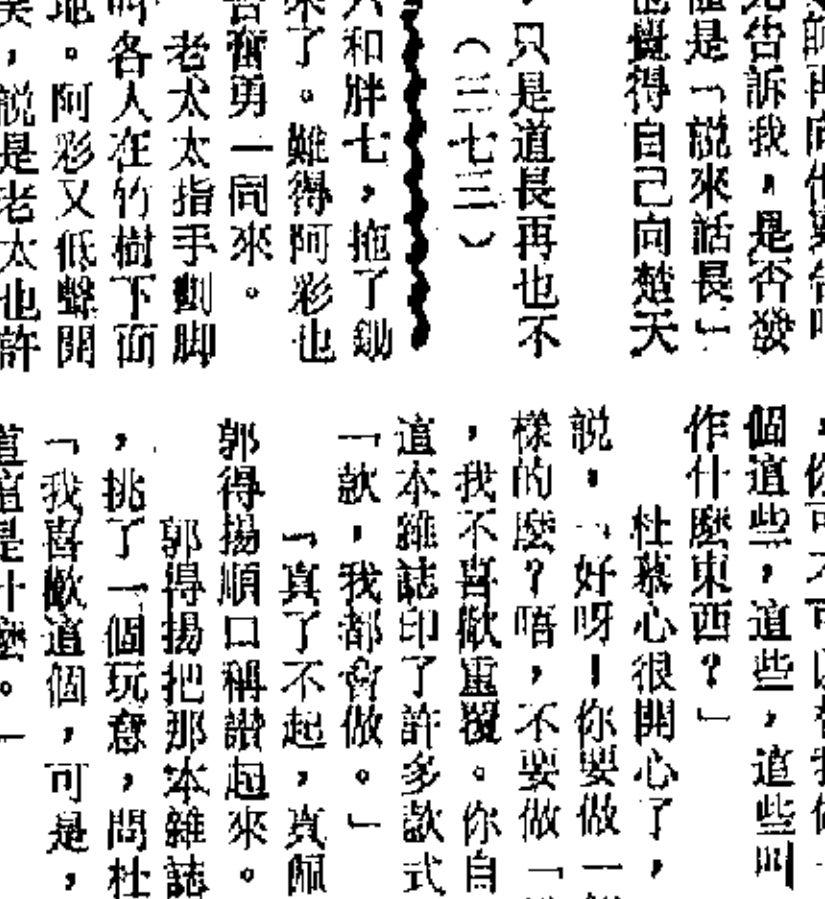 師再向
告訴我，是否發
是「說來話長」
覺得自己向楚天
，只是道長再也不
（三七三）
和胖七，拖了鋤
來了。難得阿彩也
奮勇一同來。
老太太指手劃脚
叫各人在竹樹下面
地。阿彩又低聲開
笑，說是老太也許
，你可不可以替我做一
個這些，這些，這些叫
作什麼東西？」
杜慕心很開心了，
說，「好呀！你要做一
樣的麼？唔，不要做「
，我不喜歡重覆。你自
這本雜誌印了許多款式
「款，我都會做。」
「真了不起，真佩
郭得揚順口稱讚起來。
郭得揚把那本雜誌
，挑了一個玩意，問杜
「我喜歡這個，可是，
道這是什麼。」